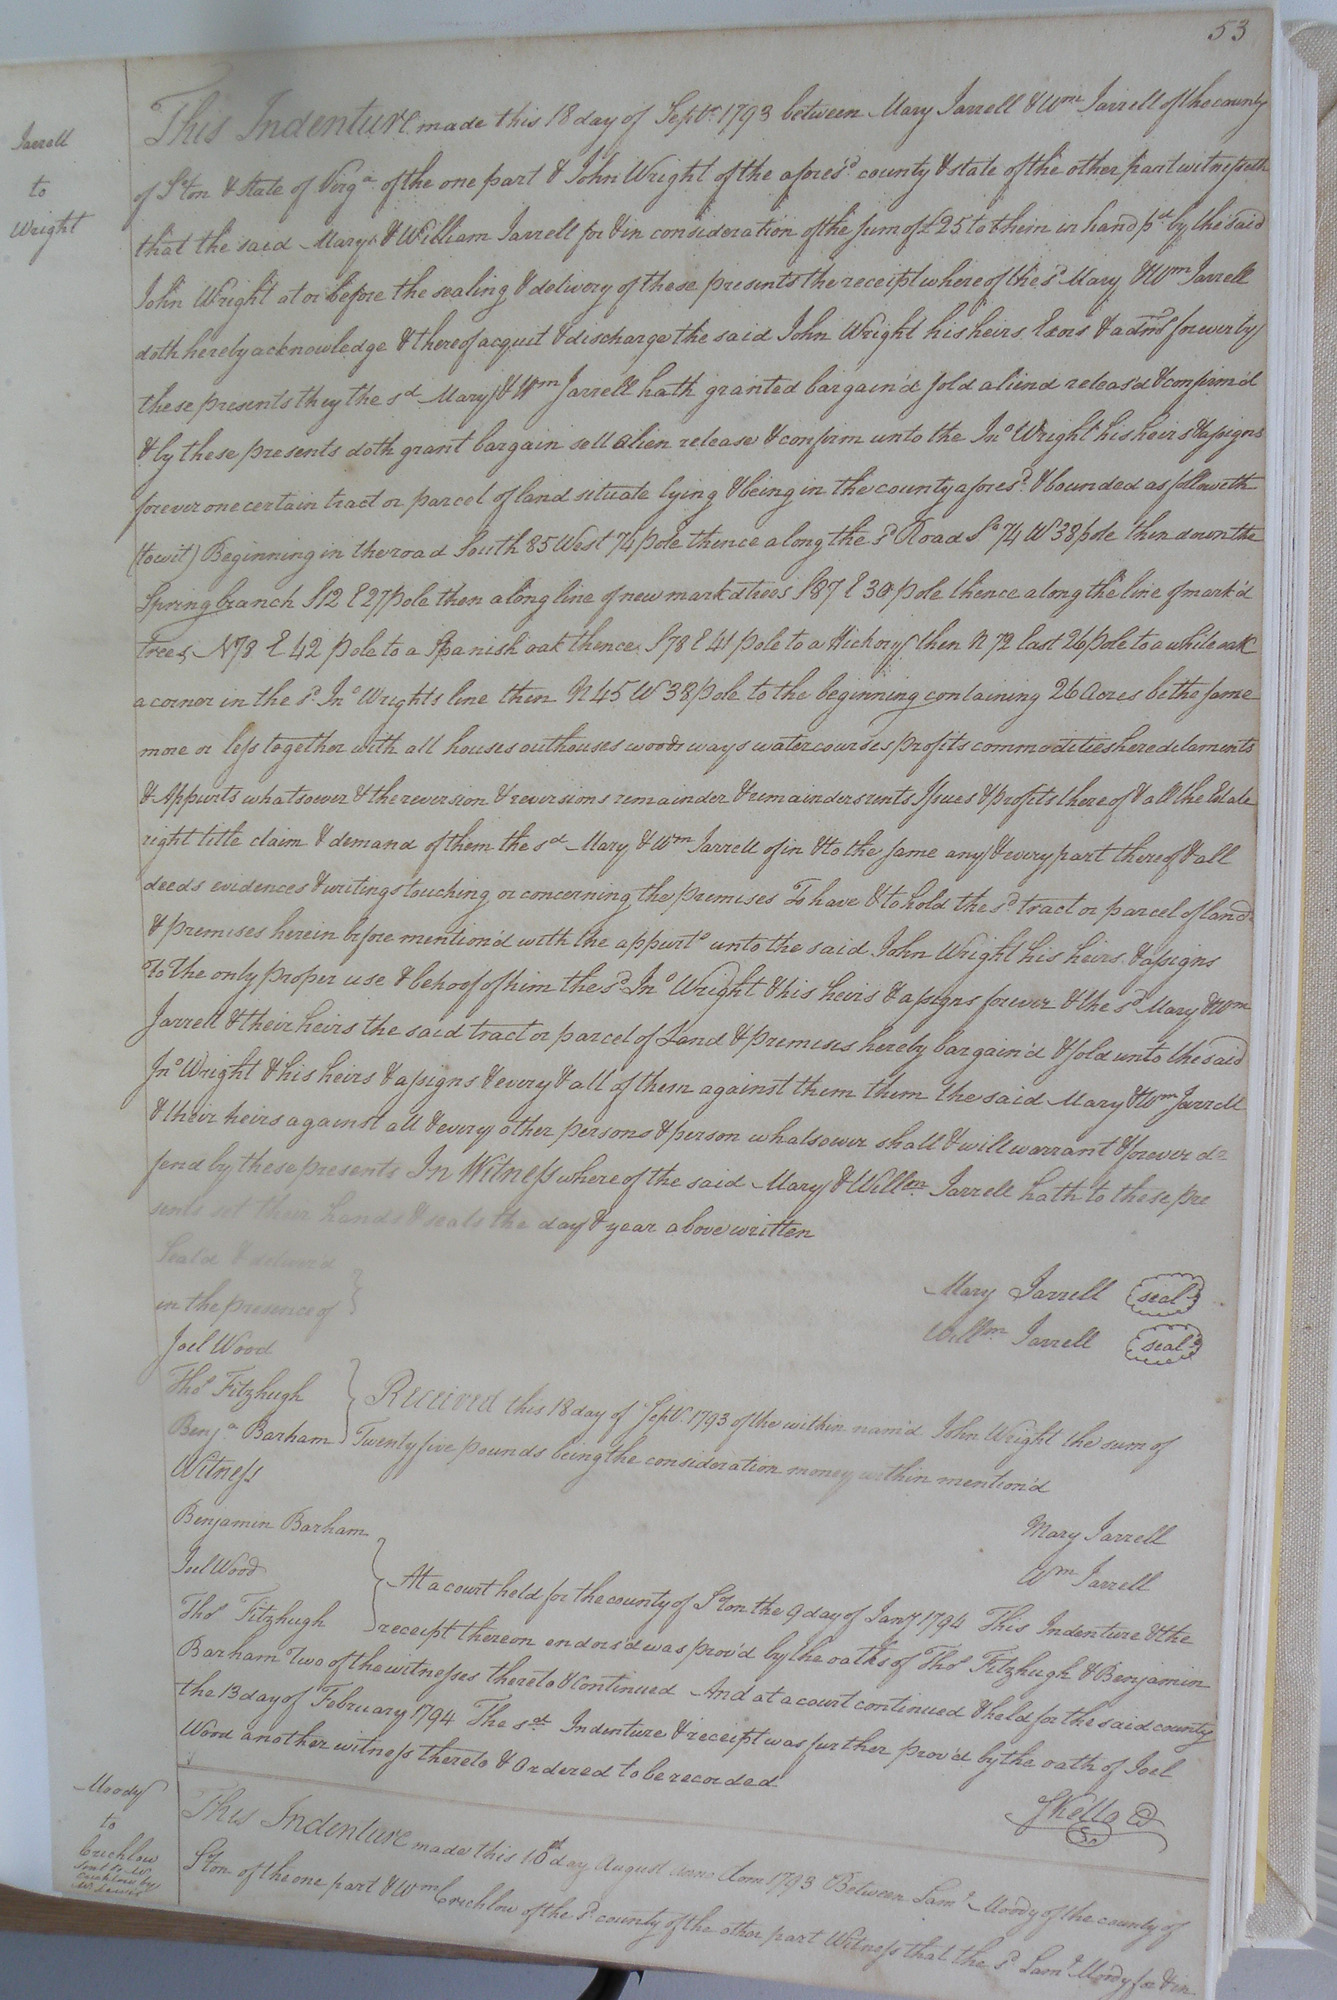 53
Jarrell
to
Wright
This Indenture made this 18 day of Septr. 1793 between Mary Jarrell & Wm Jarrell of the county
of S'ton & State of Virga. of the one part & John Wright of the afores'd. county & state of the other part witnesseth
that the said Mary & William Jarrell for & in consideration of the sum of £25 to them in hand pd by the said
John Wright at or before the sealing & delivery of these presents the receipt whereof the sd Mary & Wm Jarrell
doth hereby acknowledge & thereof acquit & discharge the said John Wright his heirs Exors & admrs forever by
these presents they the sd. Mary & Wm Jarrell hath granted bargain'd sold aliend releas'd & confirm'd
& by these presents doth grant bargain sell alien release & confirm unto the Jno Wright his heirs & assigns
forever one certain tract or parcel of land situate lying & being in the county afores'd. & bounded as followeth
(to wit) Beginning in the road South 85 West 74 pole thence along the sd Road So 74 W 38 pole then down the
Spring branch S12 E 27 pole then along line of new markd trees S87 E 30 pole thence along the line of mark'd
trees N78 E 42 pole to a Spanish oak thence S78 E 41 pole to a Hickory then N 72 East 26 pole to a white oak
a corner in the sd. Jno Wrights line then N45 W 38 pole to the beginning containing 26 Acres be the same
more or less together with all houses outhouses woods ways watercourses profits commodities heredilaments
& Appurts whatsoever & the reversion & reversions remainder & remainders rents Issues & profits thereof & all the Estate
right title claim & demand of them the sd Mary & Wm Jarrell of in & to the same any & every part thereof & all
deeds evidences & writings touching or concerning the premises To have & to hold the sd. tract or parcel of land
& premises herein before mention'd with the appurts unto the said John Wright his heirs & assigns
to the only proper use & behoof of him the sd. Jno Wright & his heirs & assigns forever & the sd Mary & Wm
Jarrell & their heirs the said tract or parcel of Land & premises hereby bargain'd & sold unto the said
Jno Wright & his heirs & assigns & every & all of them against them them the said Mary & Wm Jarrell
& their heirs against all & every other persons & person whatsoever shall & will warrant & forever de=
fend by these presents In Witness whereof the said Mary & Willm. Jarrell hath to these pre
sents set their hands & seals the day & year above written
Seal'd & deliver'd
in the presence of
Mary Jarrell (seal)
Joel Wood
Willm. Jarrell (seal)
Thos Fitzhugh
Benja Barham
Received this 18 day of Septr. 1793 of the within nam'd John Wright the sum of
Twenty five pounds being the consideration money within mention'd
Witness
Benjamin Barham
Mary Jarrell
Joel Wood
Wm Jarrell
Thos Fitzhugh
At a court held for the county of S'ton the 9 day of Jany 1794 This Indenture & the
receipt thereon endors'd was prov'd by the oaths of Thos Fitzhugh & Benjamin
Barham Two of the witnesses thereto & Continued And at a court continued & held for the said county
the 13 day of February 1794 The sd. Indenture & receipt was further prov'd by the oath of Joel
Wood another witness thereto & Ordered to be recorded
S Kello C
Moody
to
Crichlow
This Indenture made this 10th day August Anno Dom 1793 Between Saml. Moody of the county of
S'ton of the one part & Wm Crichlow of the sd. county of the other part Witness that the sd Saml. Moody for & in